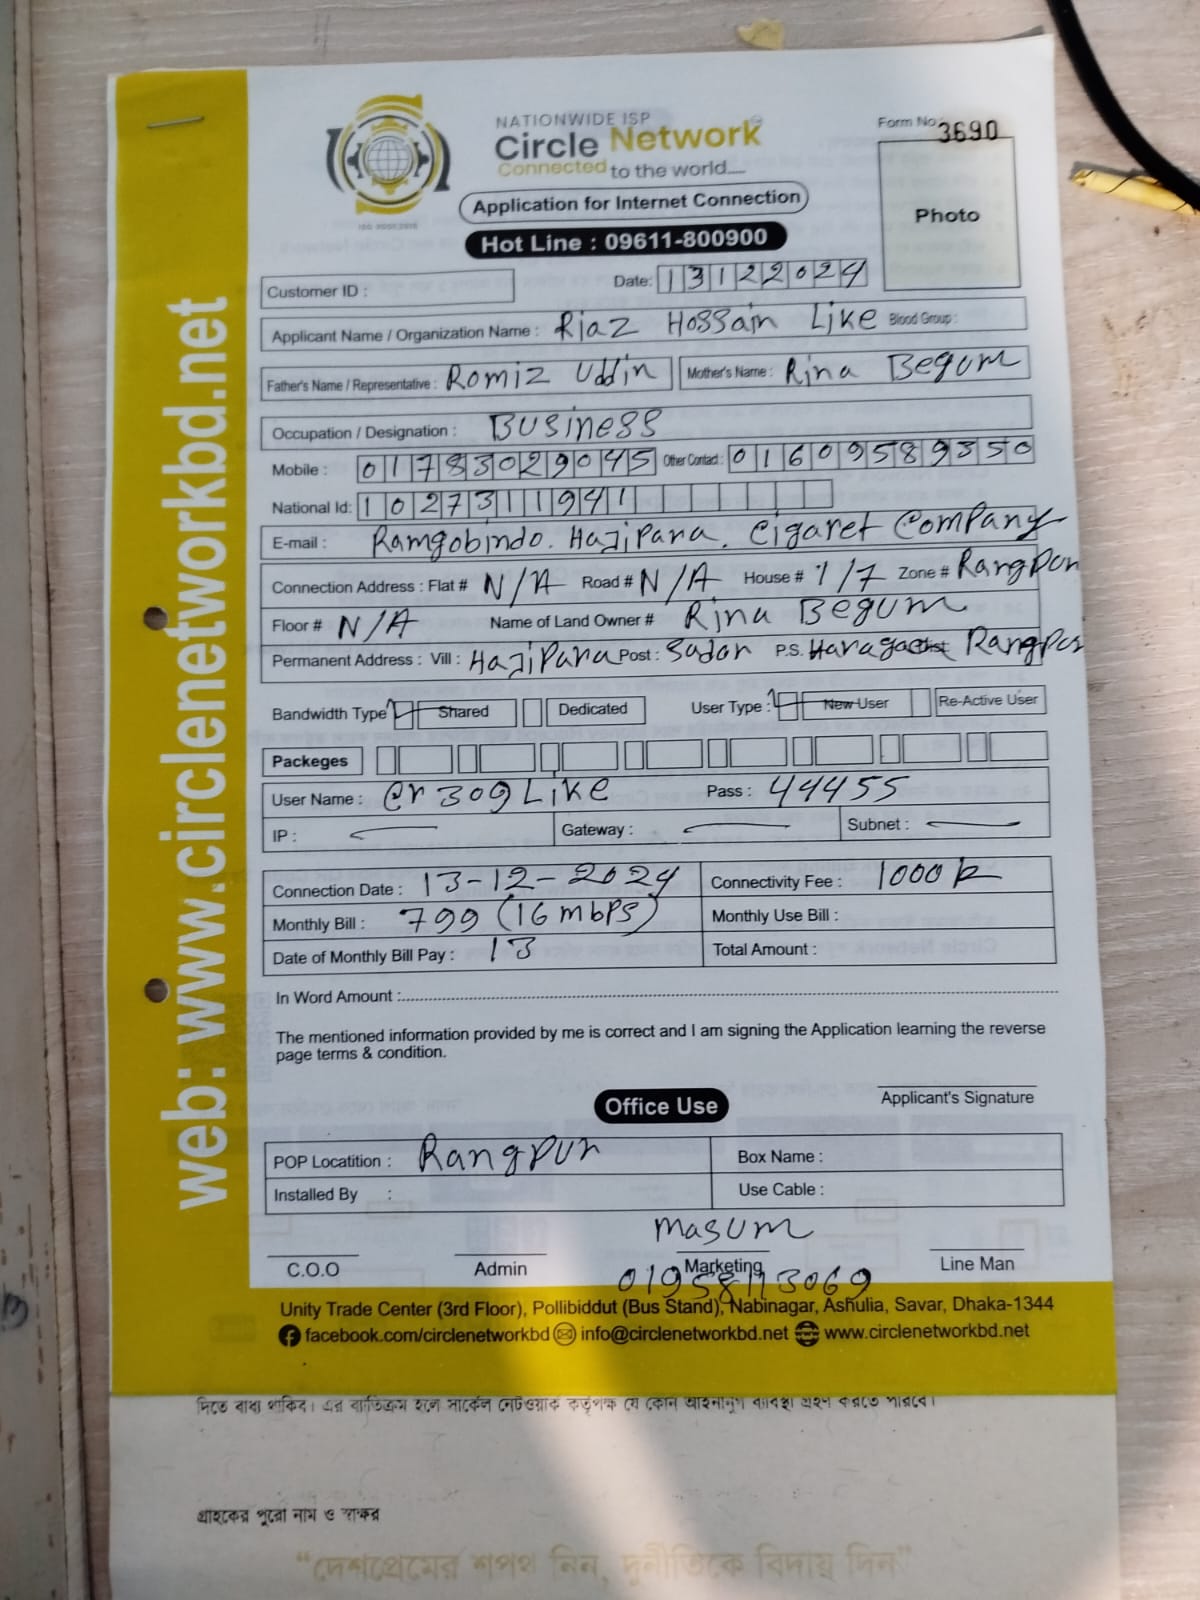 NATIONWIDE ISP
Circle Network
Connected to the world.....
Form No. 3690
Application for Internet Connection
Photo
Hot Line : 09611-800900
Customer ID :
Date: 13122024
Applicant Name / Organization Name : Riaz Hossain Like Blood Group :
Father's Name / Representative : Romiz Uddin Mother's Name : Rina Begum
Occupation / Designation : Business
Mobile : 01783029045 Other Contact : 01609589350
National Id: 1027311941
E-mail : Ramgobindo. Hajipara. Cigaret Company
Connection Address : Flat # N/A Road # N/A House # 1/7 Zone # Rangpur
Floor # N/A Name of Land Owner # Rina Begum
Permanent Address : Vill : Hajipara Post : Sadar P.S. Rangpur
Bandwidth Type Shared Dedicated User Type : New User Re-Active User
Packeges
User Name : cr309Like Pass : 44455
IP : Gateway : Subnet :
Connection Date : 13-12-2024 Connectivity Fee : 1000
Monthly Bill : 799 (16 mbps) Monthly Use Bill :
Date of Monthly Bill Pay : 13 Total Amount :
In Word Amount :
The mentioned information provided by me is correct and I am signing the Application learning the reverse
page terms & condition.
Applicant's Signature
Office Use
POP Locatition : Rangpur Box Name :
Installed By : Use Cable :
Masum
C.O.O Admin Marketing Line Man
01958113069
Unity Trade Center (3rd Floor), Pollibiddut (Bus Stand), Nabinagar, Ashulia, Savar, Dhaka-1344
facebook.com/circlenetworkbd info@circlenetworkbd.net www.circlenetworkbd.net
web: www.circlenetworkbd.net
দিতে বাধ্য থাকিব। এর ব্যতিক্রম হলে সার্কেল নেটওয়ার্ক কর্তৃপক্ষ যে কোন আইনানুগ ব্যবস্থা গ্রহণ করতে পারবে।
গ্রাহকের পুরো নাম ও স্বাক্ষর
“দেশপ্রেমের শপথ নিন, দুর্নীতিকে বিদায় দিন”